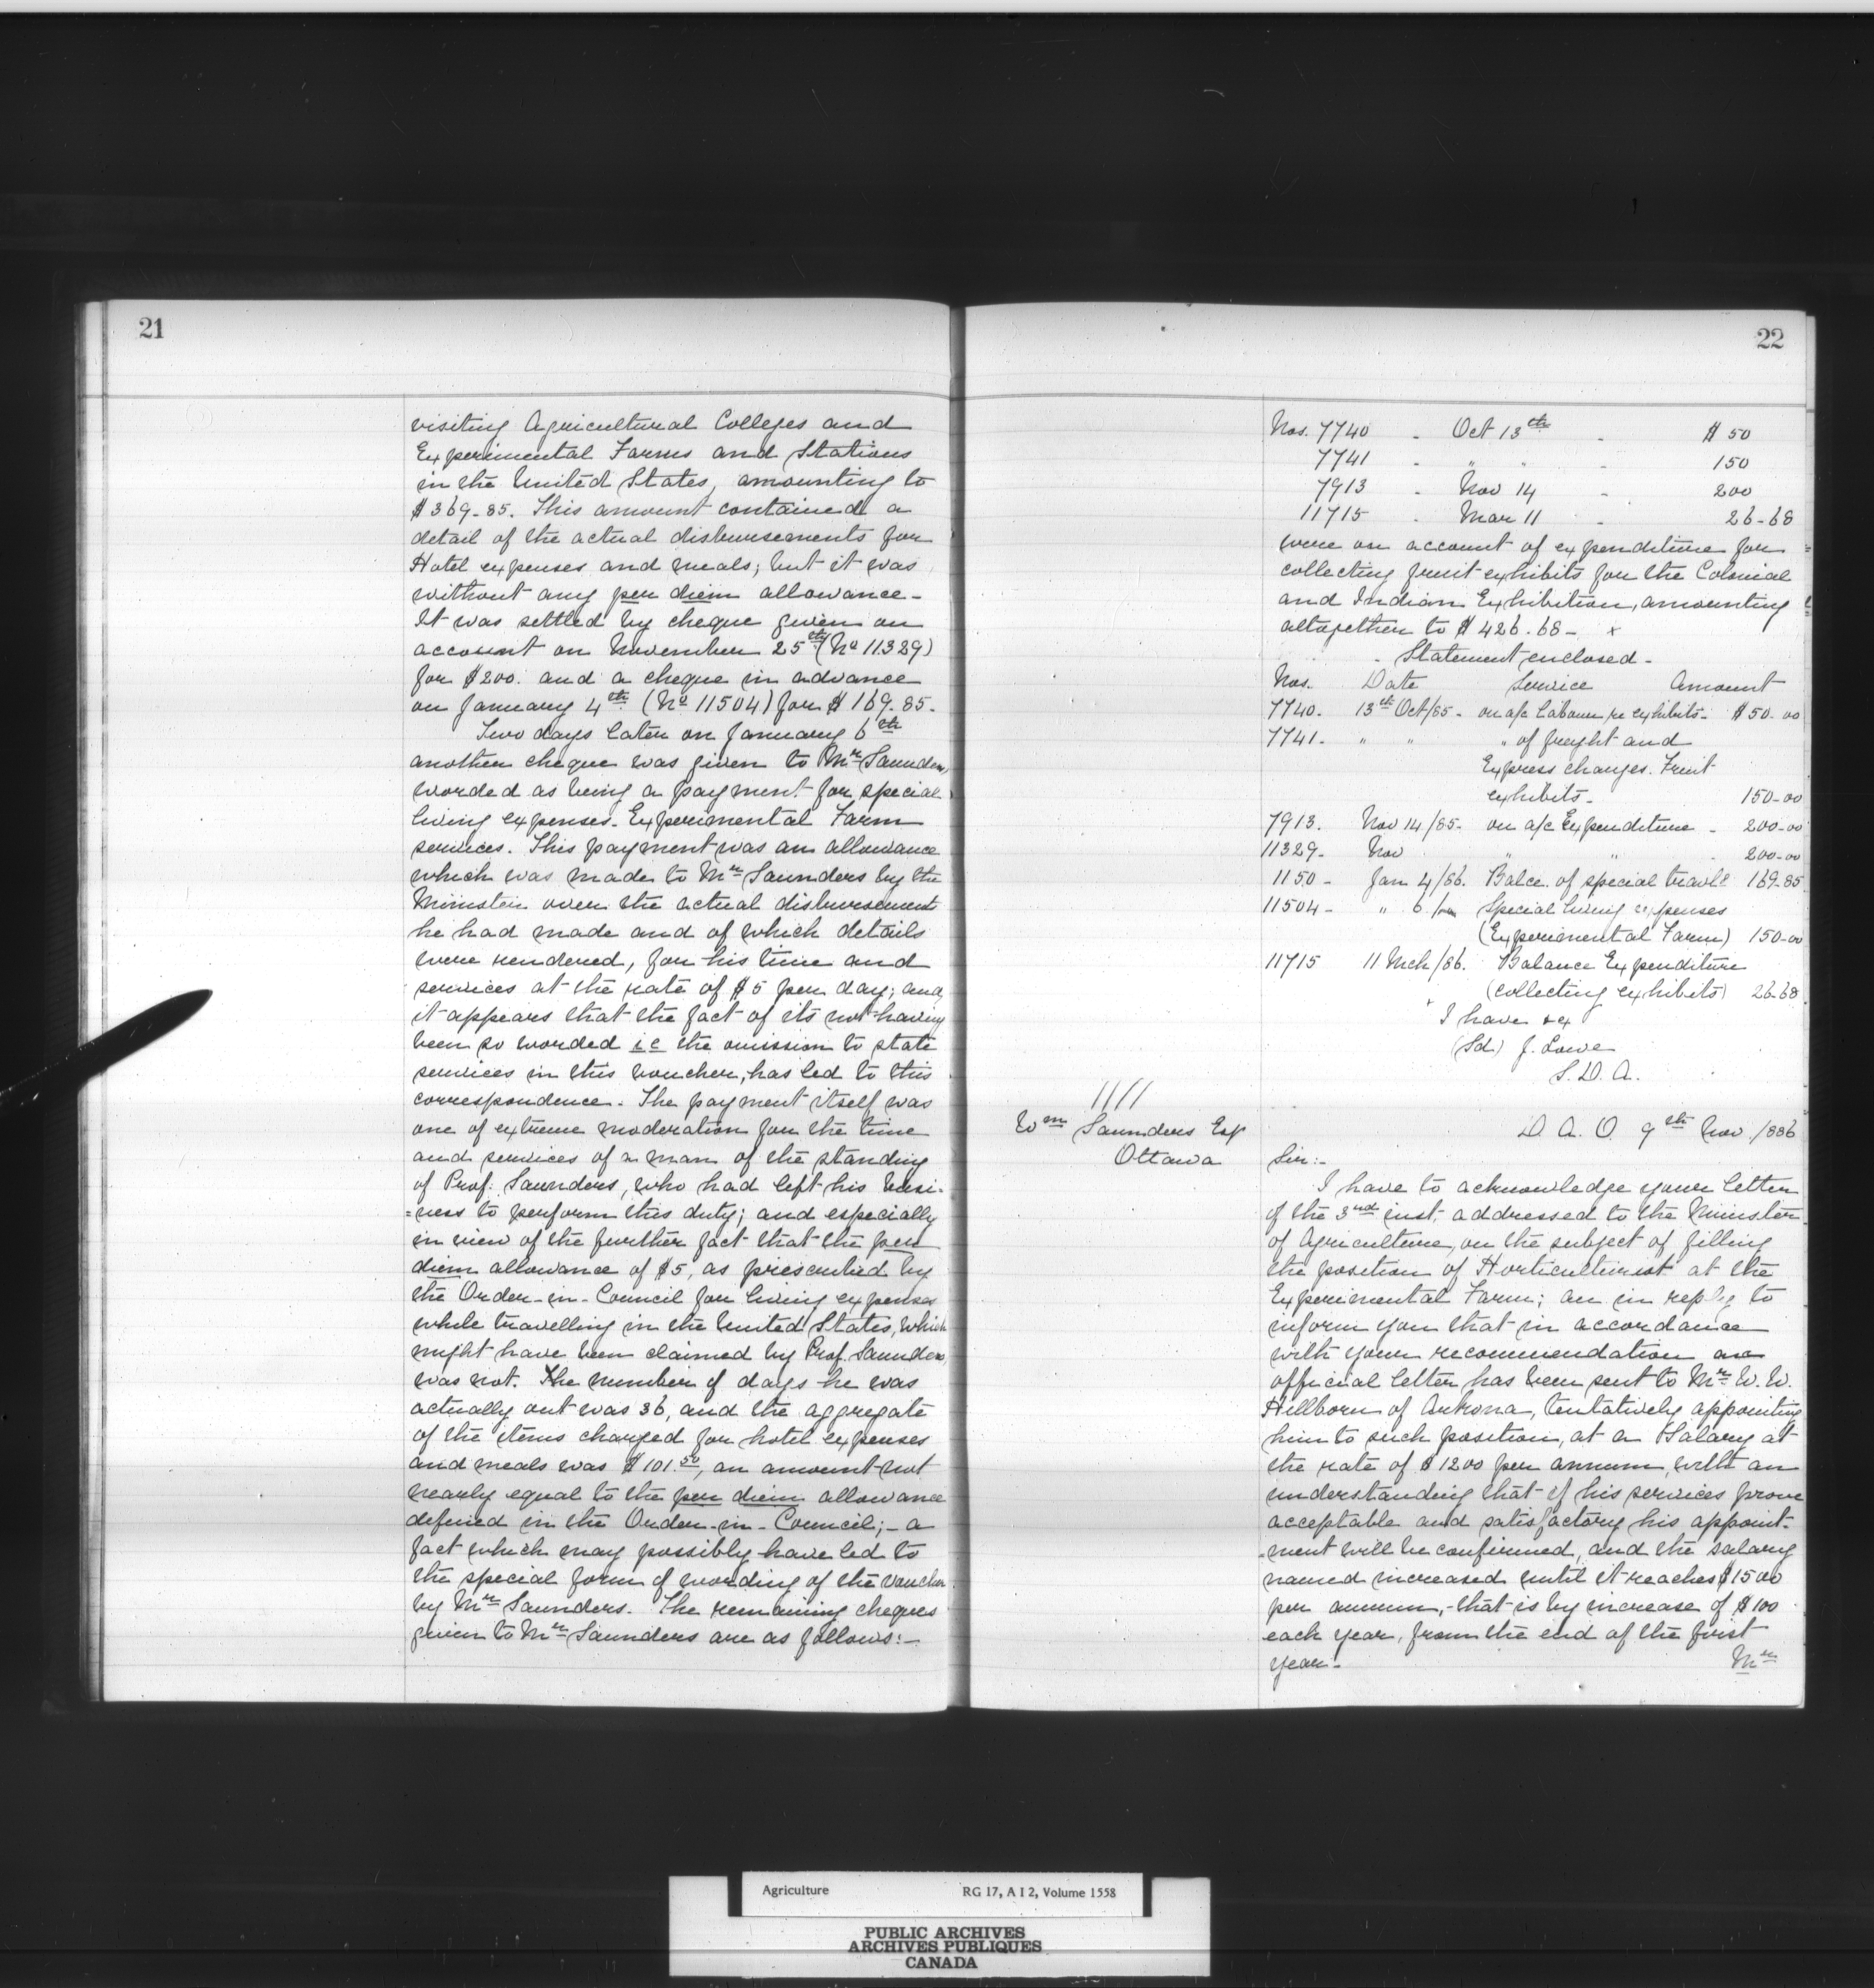 21
visiting Agricultural Colleges and
Experimental Farms and Stations
in the United States, amounting to
$369-85. This amount contained a
detail of the actual disbursements for
Hotel expenses and meals; but it was
without any per diem allowance-
It was settled by cheque given on
account on November 25th (No 11329)
for $200. and a cheque in advance
on January 4th (No 11504) for $169.85.
Two days later on January 6th
another cheque was given to Mr Saunders,
worded as being a payment for special
living expenses- Experimental Farm
services. This payment was an allowance
which was made to Mr Saunders by the
Minister over the actual disbursement
he had made and of which details
were rendered, for his time and
services at the rate of $5 per day; and
it appears that the fact of its not having
been so worded ie the omission to state
services in this voucher, has led to this
correspondence. The payment itself was
one of extreme moderation for the time
and services of a man of the standing
of Prof. Saunders, who had left his busi-
=ness to perform this duty; and especially
in view of the further fact that the per
diem allowance of $5, as prescribed by
the Order-in-Council for living expenses
while travelling in the United States, which
might have been claimed by Prof. Saunders,
was not. The number of days he was
actually out was 36, and the aggregate
of the items charged for hotel expenses
and meals was $101.50, an amount not
nearly equal to the per diem allowance
defined in the Order-in-Council;- a
fact which may possibly have led to
the special form of wording of the voucher
by Mr Saunders. The remaining cheques
given to Mr Saunders are as follows:-
22
Nos. 7740 - Oct 13th - $50
7741 - " " - 150
7913 - Nov 14 - 200
11715 - Mar 11 - 26-68
were on account of expenditure for
collecting fruit exhibits for the Colonial
and Indian Exhibition, amounting
altogether to $426.68- x
- Statement enclosed-
Nos. Date Service Amount
7740. 13th Oct/85- on a/c labour re exhibits- $50-00
7741. " " " of freight and
Express charges. Fruit
exhibits- 150-00
7913. Nov 14/85- on a/c Expenditure - 200-00
11329- Nov " " - 200-00
1150- Jan 4/86. Balce. of special travlg 169-85
11504- " 6/ Special living expenses
(Experimental Farm) 150-00
11715 11 Mch/86. Balance Expenditure
(collecting exhibits) 26-68
I have &c
(Sd) J. Lowe
S. D. A.
1111
Wm Saunders Esq
Ottawa
D. A. O. 9th Nov /886
Sir:-
I have to acknowledge your letter
of the 3rd inst, addressed to the Minister
of Agriculture, on the subject of filling
the position of Horticulturist at the
Experimental Farm; an in reply to
inform you that in accordance
with your recommendation an
official letter has been sent to Mr W. W.
Hillborn of Arkona, tentatively appointing
him to such position, at a Salary at
the rate of $1200 per annum, with an
understanding that if his services prove
acceptable and satisfactory his appoint-
-ment will be confirmed, and the salary
named increased until it reaches $1500
per annum,- that is by increase of $100
each year, from the end of the first
year-
Mr
Agriculture RG 17, A I 2, Volume 1558
PUBLIC ARCHIVES
ARCHIVES PUBLIQUES
CANADA